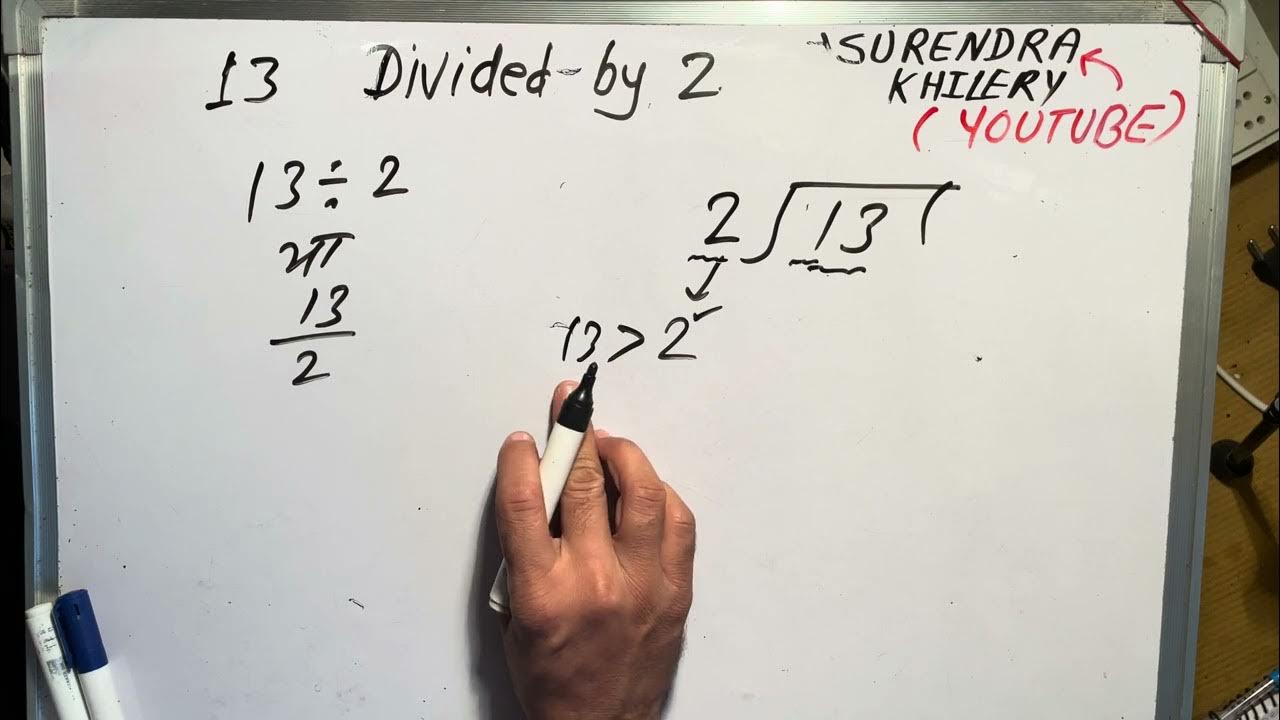 13 Divided by 2
SURENDRA
KHILERY
(YOUTUBE)
13 ÷ 2
या
13
2
2)13(
13 > 2 ✓